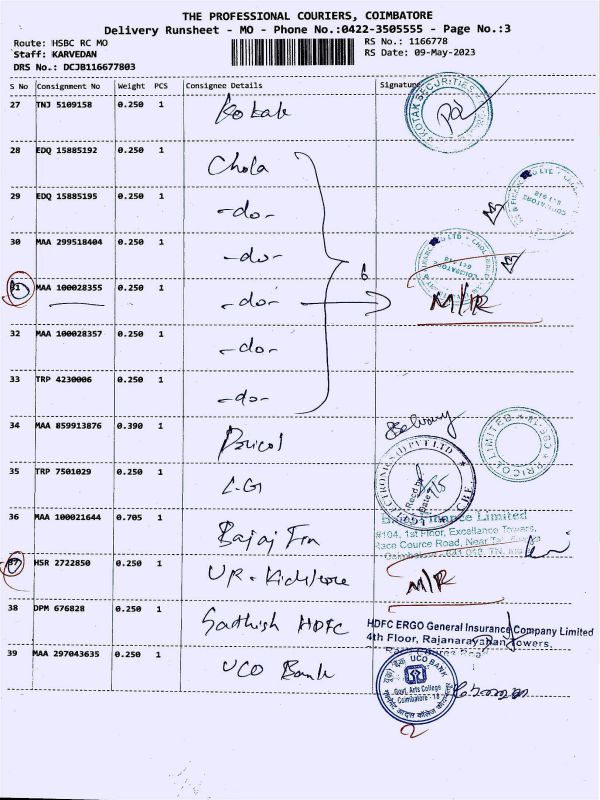 THE PROFESSIONAL COURIERS, COIMBATORE
Delivery Runsheet - MO - Phone No.:0422-3505555 - Page No.:3
Route: HSBC RC MO
RS No.: 1166778
Staff: KARVEDAN
RS Date: 09-May-2023
DRS No.: DCJB116677803
S No Consignment No Weight PCS Consignee Details Signature
27 TNJ 5109158 0.250 1 Kotak
KOTAK SECURITIES
28 EDQ 15885192 0.250 1 Chola
29 EDQ 15885195 0.250 1 -do-
30 MAA 299518404 0.250 1 -do-
31 MAA 100028355 0.250 1 -do- 6 M/R
32 MAA 100028357 0.250 1 -do-
33 TRP 4230006 0.250 1 -do-
34 MAA 859913876 0.390 1 Pricol
PRICOL LIMITED
35 TRP 7501029 0.250 1 LG
36 MAA 100021644 0.705 1 Bajaj Fin
Finance Limited
#104, 1st Floor, Excellance Towers,
Race Cource Road, Near
37 HSR 2722850 0.250 1 M/R
38 DPM 676828 0.250 1 Sathish HDFC
HDFC ERGO General Insurance Company Limited
4th Floor, Rajanarayanan Towers,
39 MAA 297043635 0.250 1 UCO Bank
UCO BANK
Govt. Arts College
Coimbatore - 18
2